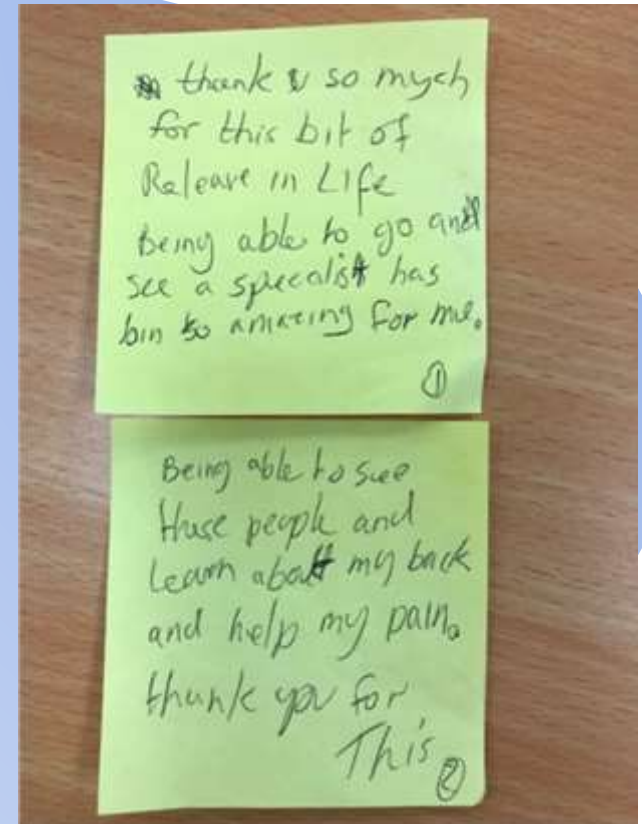 thank u so much
for this bit of
Releave in Life
Being able to go and
see a specalist has
bin so amazing for me.
①
Being able to see
these people and
Learn about my back
and help my pain.
thank you for
This
②